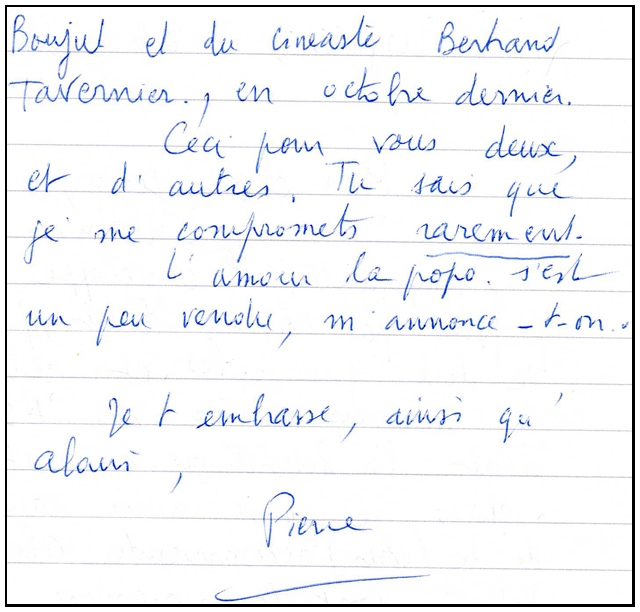 Boujut et du cinéaste Bertrand
Tavernier., en octobre dernier.
Ceci pour vous deux,
et d'autres. Tu sais que
je me compromets rarement.
L'amour la popo. s'est
un peu vendu, m'annonce-t-on.
Je t'embrasse, ainsi qu'
Alain,
Pierre